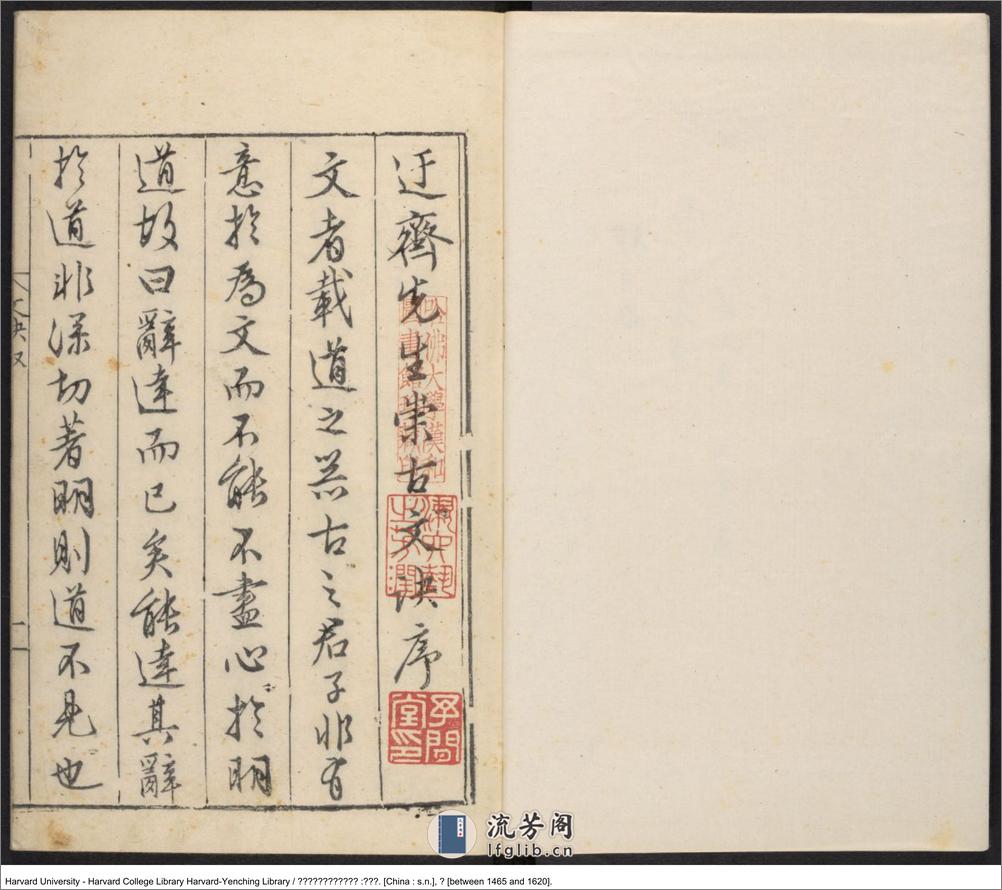 迂齋先生崇古文訣序
文者載道之器古之君子非有
意於爲文而不能不盡心於明
道故曰辭達而已矣能達其辭
於道非深切著明則道不見也
文訣叙
一
哈佛大學漢和
圖書館珍藏印
流芳阁
lfglib.cn
Harvard University - Harvard College Library Harvard-Yenching Library / ???????????? :???. [China : s.n.], ? [between 1465 and 1620].